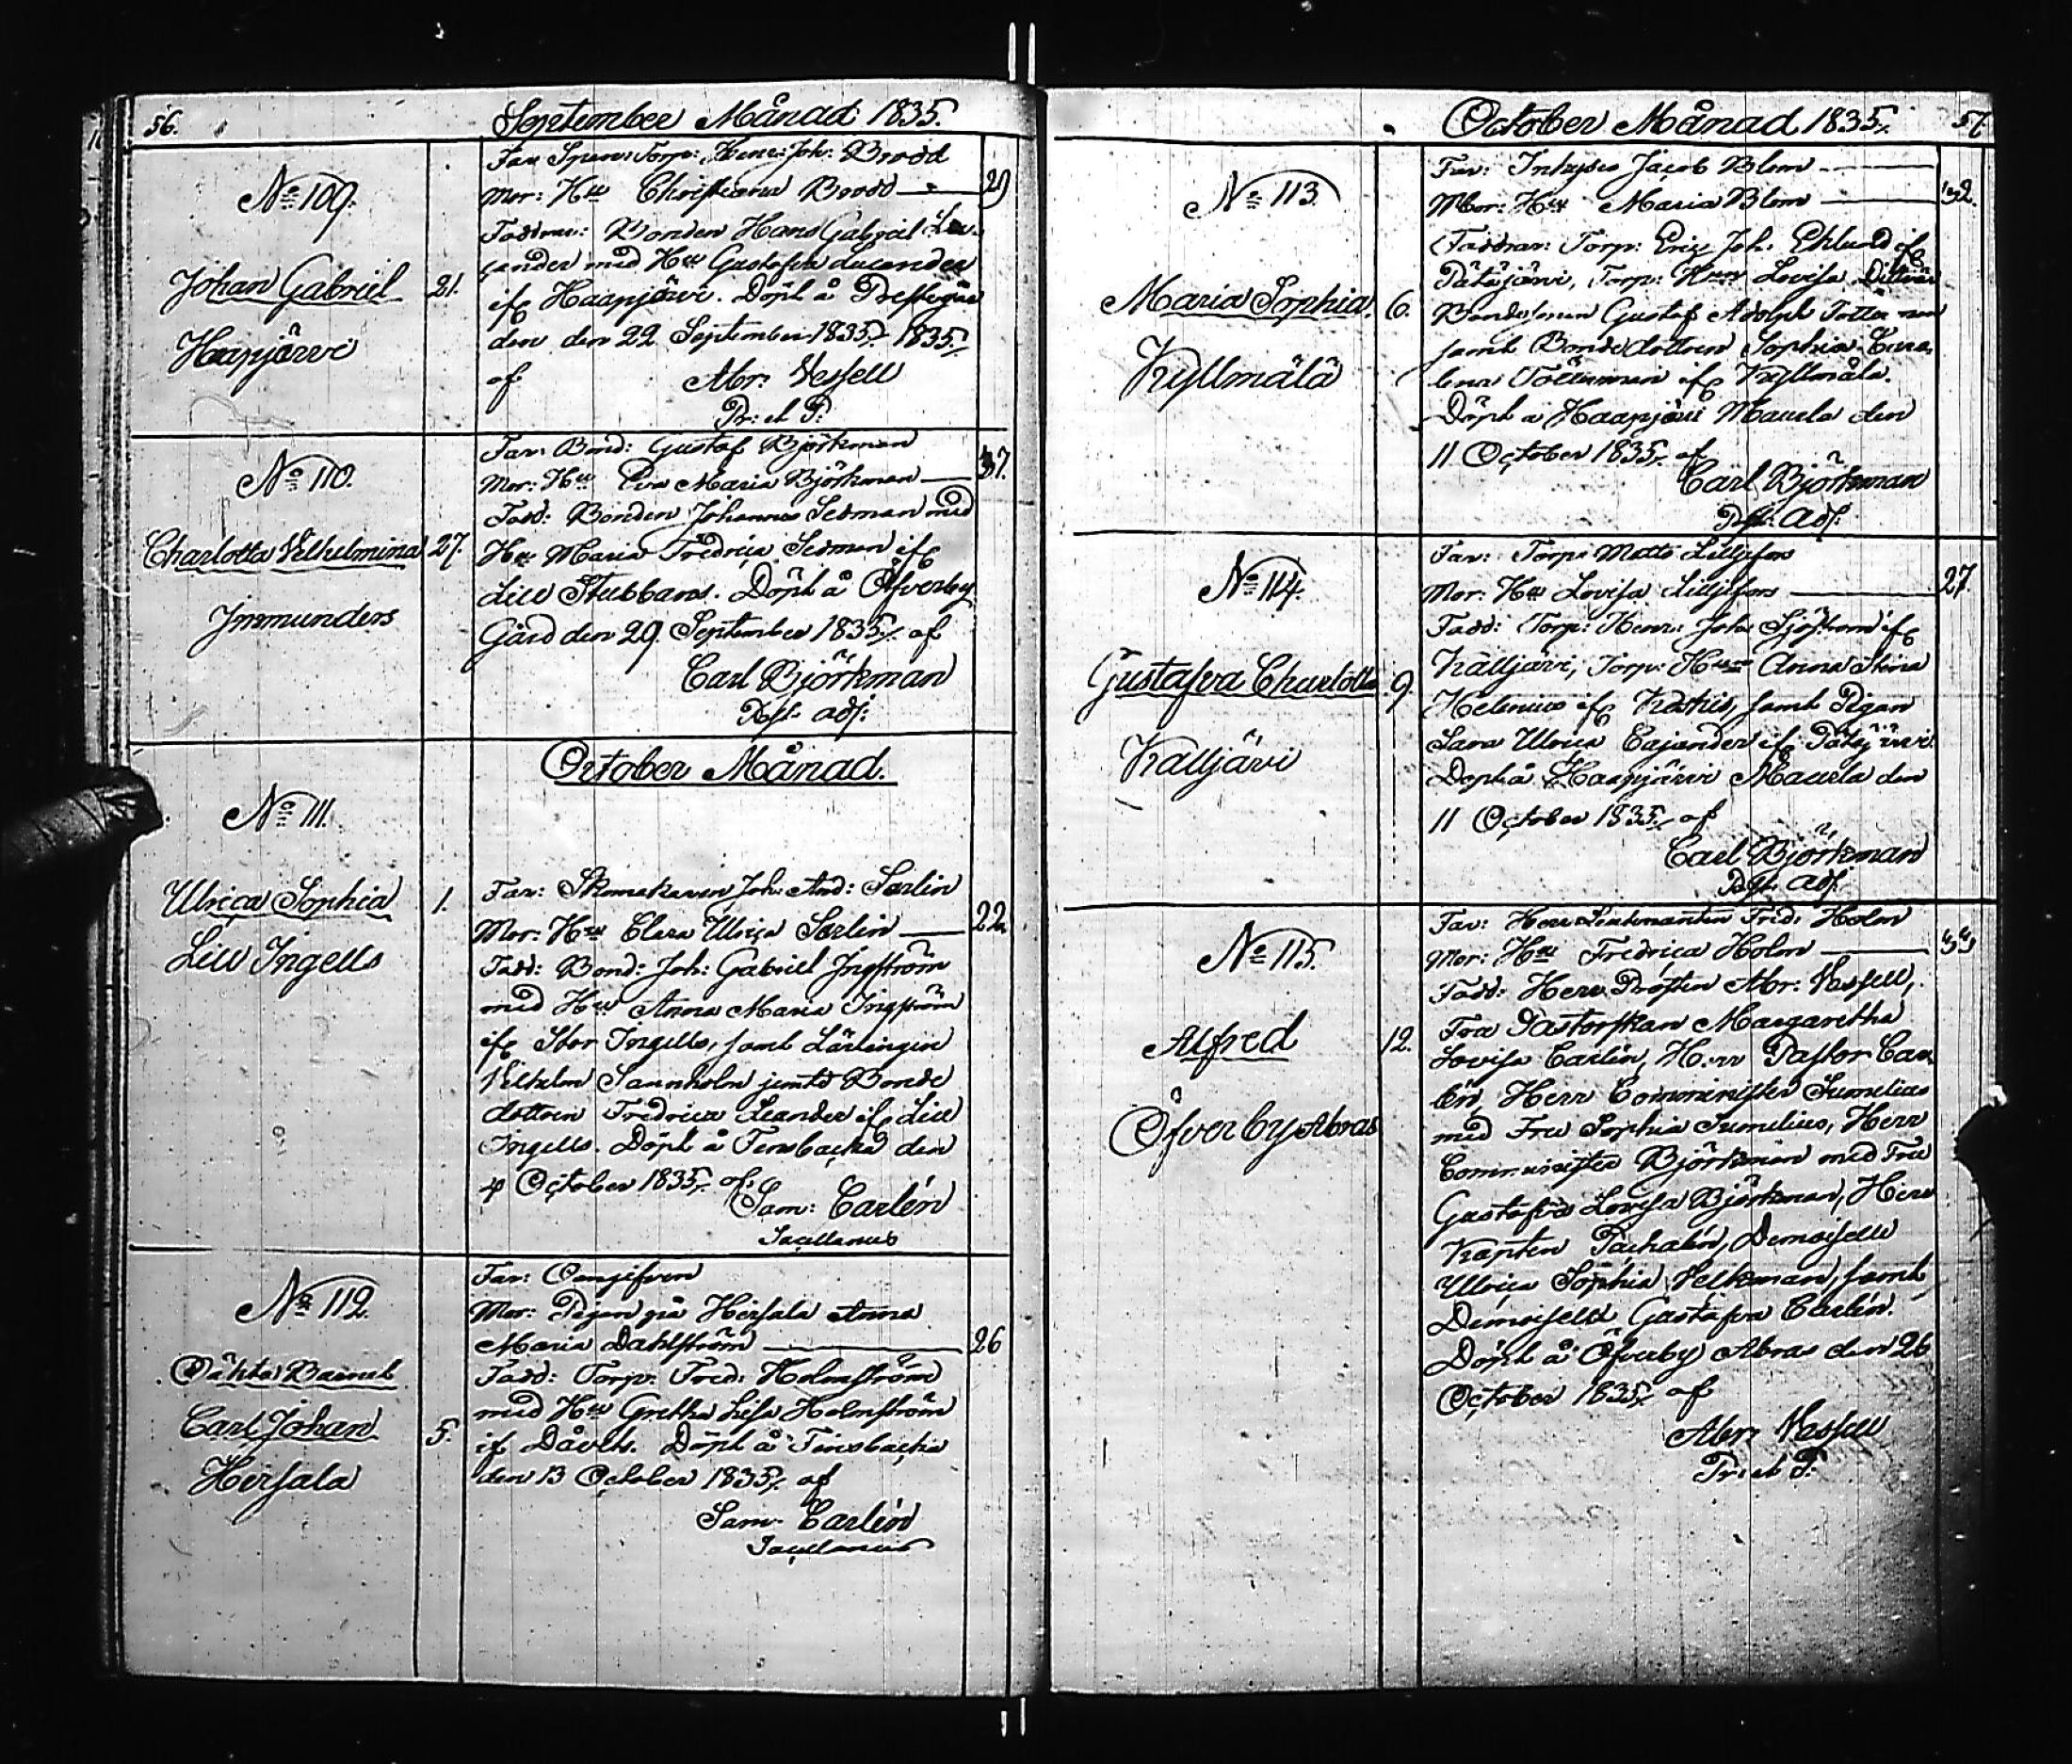 56.
September Månad 1835.
No 109.
Johan Gabriel
Haapjärvi
21.
Far Torp: Henr: Joh: Brodd
Mor: Hu Christiana Brodd — 29
Faddrar: Bonden Hans Gabriel
med Hu Gustafva Lucander
if Haapjärvi. Döpt å Prestegår
den den 22 September 1835. 1835.
af Abr: Vessell
Pr: et P:
No 110.
Charlotta Vilhelmina
Immunders
27.
Far: Bond: Gustaf Björkman
Mor: Hu Eva Maria Björkman — 37.
Fadd: Bonden Johannes Sedman med
Hu Maria Fredrica Sedman if
Lill Stubbans. Döpt å Öfverby
Gård den 29. September 1835. af
Carl Björkman
Pst. adj:
October Månad.
No 111.
Ulrica Sophia
Lill Ingells
1.
Far: Skomakaren Joh: And: Sarlin
Mor: Hu Clara Ulrica Sarlin — 22
Fadd: Bond: Joh: Gabriel Ingström
med Hu Anna Maria Ingström
if Stor Ingells, samt Lärlingen
Vilhelm Sannholm jemte Bonde
dottren Fredrica Leander if Lill
Ingells. Döpt å Finsbacka den
4 October 1835. af
Sam: Carlén
Sacellanus
No 112.
Oäkta Barnet
Carl Johan
Hirsala
5.
Far: Oangifven
Mor: Pigan på Hirsala Anna
Maria Dahlström — 26
Fadd: Torp: Fred: Holmström
med Hu Gretha Lisa Holmström
if Dåvits. Döpt å Finsbacka
den 13 October 1835. af
Sam: Carlén
Sacellanus
October Månad 1835.
57
No 113.
Maria Sophia
Kyllmälä
6.
Far: Inhyses Jacob Blom —
Mor: Hu Maria Blom — 32.
Faddrar: Torp: Eric Joh: Ehlund if
Pätäjärvi, Torp: Hun Lovisa
Bondesonen Gustaf Adolph
samt Bondedottren Sophia
if Kyllmälä.
Döpt å Haapjärvi Maula den
11 October 1835. af
Carl Björkman
Pst. adj:
No 114.
Gustafva Charlotta
Kalljärvi
9.
Far: Torp: Matts Lilljefors
Mor: Hu Lovisa Lilljefors — 27.
Fadd: Torp: Henr: Joh: Sjöström if
Kalljärvi, Torp: Hun Anna Stina
Helenius if Kaskis, samt Pigan
Sara Ulrica Cajander if Pätäjärvi.
Döpt å Haapjärvi Maula den
11 October 1835. af
Carl Björkman
Pst. adj:
No 115.
Alfred
Öfverby Abras
12.
Far: Herr Lieutenanten Fred: Holm
Mor: Hu Fredrica Holm — 33
Fadd: Herr Prosten Abr: Vessell,
Fru Pastorskan Margaretha
Lovisa Carlén, Herr Pastor Car
lén, Herr Comminister Sumelius
med Fru Sophia Sumelius, Herr
Comminister Björkman med Fru
Gustafva Lovisa Björkman, Herr
Kapten Pachalén, Demoiselle
Ulrica Sophia Veckman, samt
Demoiselle Gustafva Carlén.
Döpt å Öfverby Abras den 26
October 1835. af
Abr: Vessell
Pr: et P: